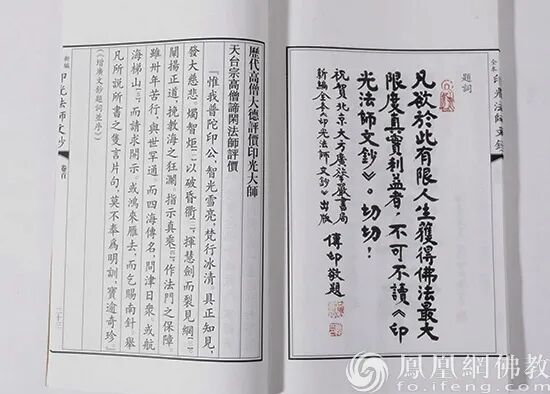 全本 印光法師文鈔
題詞
凡欲於此有限人生獲得佛法最大
限度真實利益者，不可不讀《印
光法師文鈔》。切切！
祝賀北京大方廣華嚴書局
新編全本《印光法師文鈔》出版
傳印敬題
歷代高僧大德評價印光大師
天台宗高僧諦閑法師評價
「惟我普陀印公，智光雪亮，梵行冰清，具正知見，
發大慈悲，燭智炬以破昏衢，揮慧劍而裂見網，
闡揚正道，挽教海之狂瀾。指示真乘，作法門之保障。
雖卅年苦行，與世罕通，而四海傳名，問津日衆。或航
海梯山，而請求開示；或鴻來雁去，而乞賜南針。舉
凡所說所書之隻言片句，莫不奉為明訓，寶逾奇珍。」
（《增廣文鈔題詞並序》）
新編 印光法師文鈔 卷首 二十三
鳳凰網佛教
fo.ifeng.com